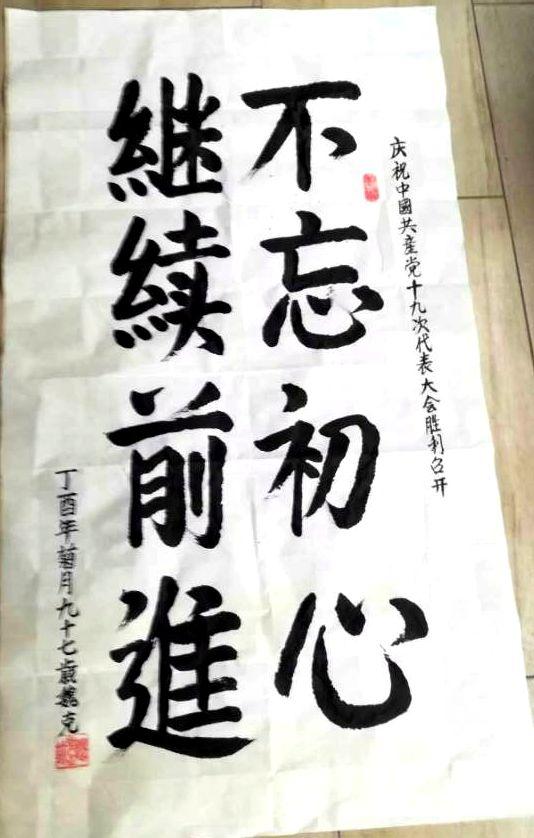 庆祝中國共産党十九次代表大会胜利召开
不忘初心
継续前進
丁酉年菊月九十七歲魏克